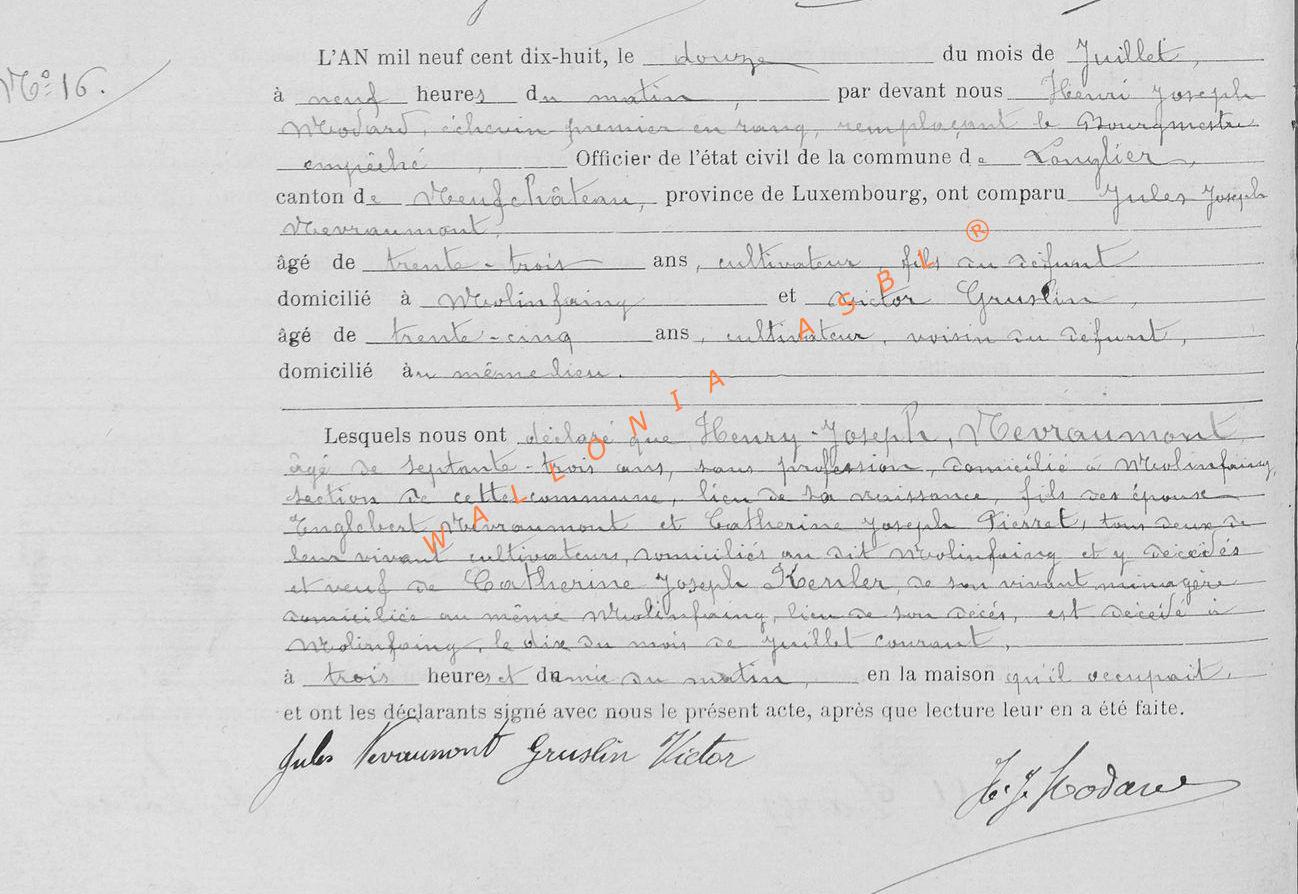 L'AN mil neuf cent dix-huit, le douze du mois de Juillet,
N° 16.
à neuf heures du matin, par devant nous Henri Joseph
Modard, échevin premier en rang, remplaçant le Bourgmestre
empêché, Officier de l'état civil de la commune de Longlier,
canton de Neufchâteau, province de Luxembourg, ont comparu Jules Joseph
Nevraumont,
âgé de trente-trois ans, cultivateur, fils du défunt
domicilié à Molinfaing et Victor Gruslin,
âgé de trente-cinq ans, cultivateur, voisin du défunt,
domicilié au même lieu.
Lesquels nous ont déclaré que Henry-Joseph, Nevraumont,
âgé de septante-trois ans, sans profession, domicilié à Molinfaing,
section de cette commune, lieu de sa naissance, fils des époux
Englebert Nevraumont et Catherine Joseph Pierret, tous deux de
leur vivant cultivateurs, domiciliés au dit Molinfaing et y décédés
et veuf de Catherine Joseph Kesler, de son vivant ménagère
domiciliée au même Molinfaing, lieu de son décès, est décédé à
Molinfaing, le dix du mois de Juillet courant,
à trois heures et demie du matin, en la maison qu'il occupait,
et ont les déclarants signé avec nous le présent acte, après que lecture leur en a été faite.
Jules Nevraumont Gruslin Victor
H. J. Modard
WALLONIA ASBL ®